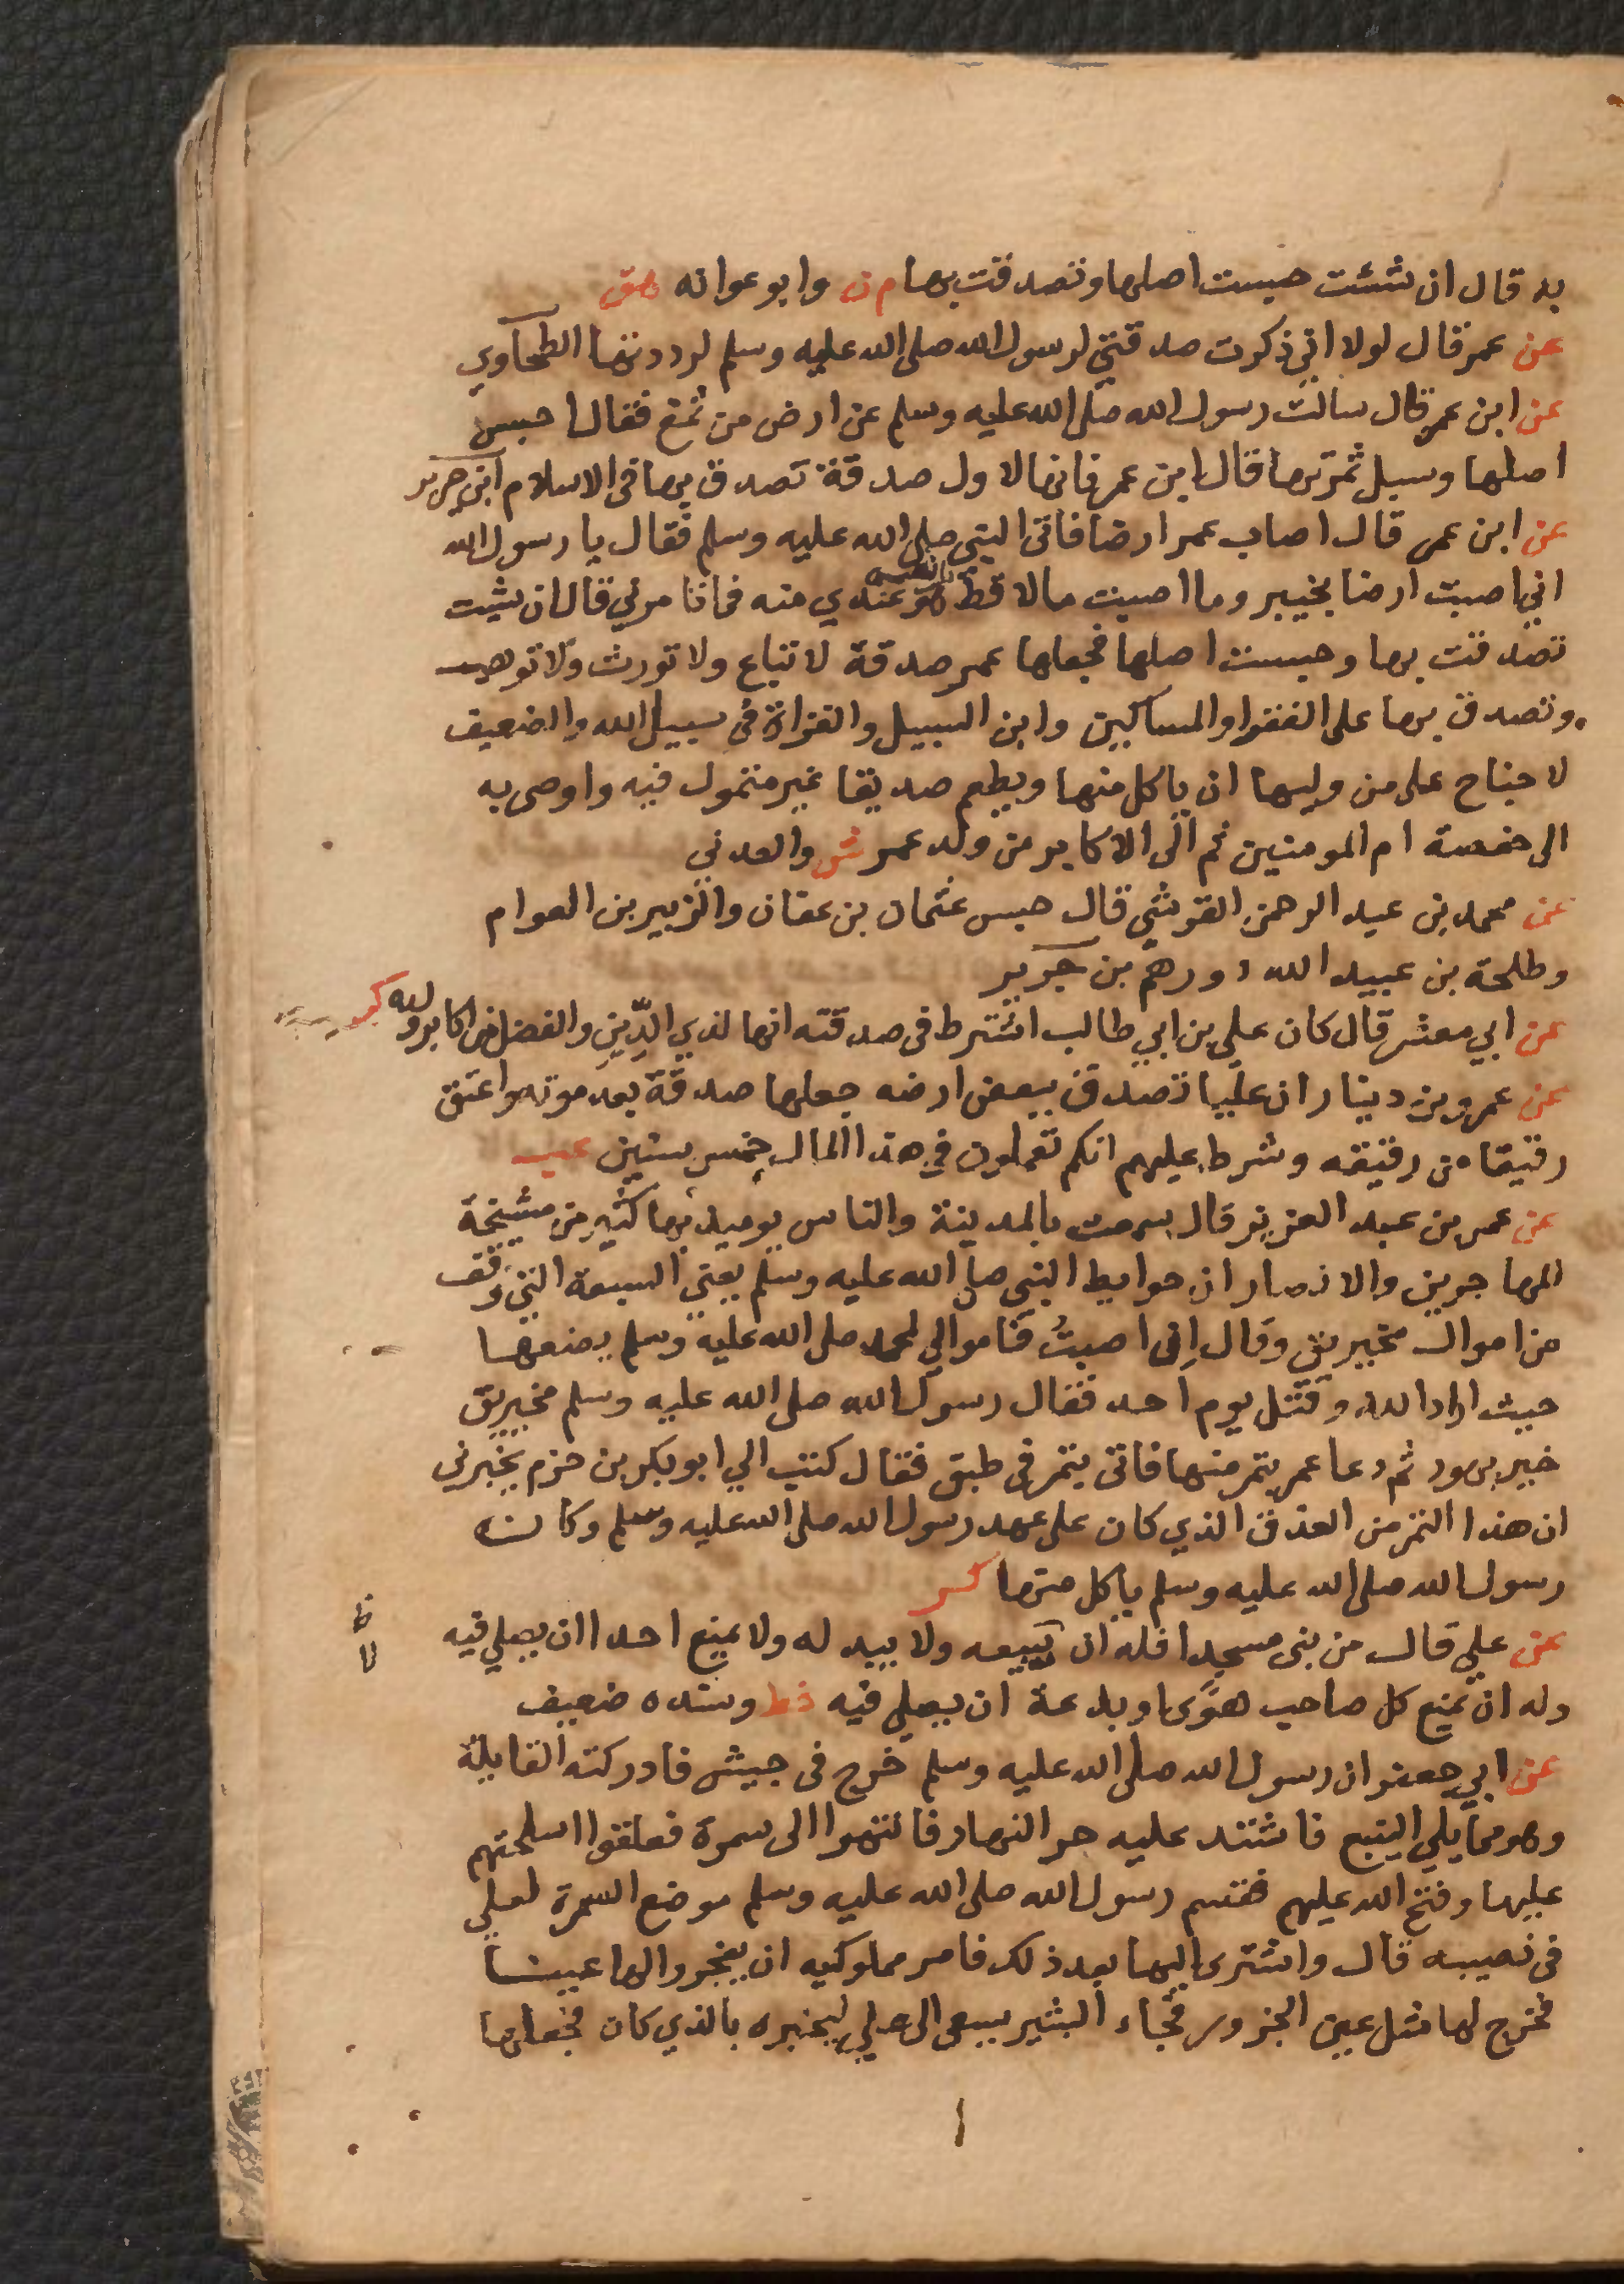 به قال ان شئت حبست اصلها وتصدقت بها م ن وابو عوانه هق
عن عمر قال لولا اني ذكرت صدقتي لرسول الله صلى الله عليه وسلم لرددتها الطحاوي
عن ابن عمر قال سالت رسول الله صلى الله عليه وسلم عن ارض من ثمغ فقال احبس
اصلها وسبل ثمرتها قال ابن عمر فانها لاول صدقة تصدق بها في الاسلام ابن جرير
عن ابن عمر قال اصاب عمر ارضا فاتى النبي صلى الله عليه وسلم فقال يا رسول الله
اني اصبت ارضا بخيبر وما اصبت مالا قط هو عندي منه فما تامرني قال ان شيت
تصدقت بها وحبست اصلها فجعلها عمر صدقة لا تباع ولا تورث ولا توهب
وتصدق بها على الفقرا والمساكين وابن السبيل والغزاة في سبيل الله والضعيف
لا جناح على من وليها ان ياكل منها ويطعم صديقا غير متمول فيه واوصى به
الى حفصة ام المومنين ثم الى الاكابر من ولد عمر ش والعدني
عن محمد بن عبد الرحمن القرشي قال حبس عثمان بن عفان والزبير بن العوام
وطلحة بن عبيد الله دورهم بن جرير
عن ابي معشر قال كان علي بن ابي طالب اشترط في صدقته انها لذي الدِّينِ والفضل من اكابر ولده كر
عن عمرو بن دينار ان عليا تصدق ببعض ارضه جعلها صدقة بعد موته واعتق
رقيقا من رقيقه وشرط عليهم انكم تعملون في هذا المال خمس سنين عب
عن عمر بن عبد العزيز قال سمعت بالمدينة والناس يوميد بها كثير من مشيخة
المهاجرين والانصار ان حوايط النبي صلى الله عليه وسلم يعني السبعة التي وقف
من اموال مخيريق وقال اِنى اصبتُ فاموالي لمحمد صلى الله عليه وسلم يضعها
حيث اراد الله وقتل يوم احد فقال رسول الله صلى الله عليه وسلم مخيريق
خير يهود ثم دعا عمر بتمر منها فاتى بتمر في طبق فقال كتب الي ابو بكر بن حزم يخبرني
ان هذا التمر من العذق الذي كان على عهد رسول الله صلى الله عليه وسلم وكان
رسول الله صلى الله عليه وسلم ياكل منها كر
عن علي قال من بنى مسجدا فله ان يبيعه ولا يبد له ولا يمنع احدا ان يصلي فيه
وله ان يمنع كل صاحب هوًى او بدعة ان يصلي فيه خط وسنده ضعيف
عن ابي جعفر ان رسول الله صلى الله عليه وسلم خرج في جيش فادركته القايلة
وهو مما يلي الينبع فاشتد عليه حر النهار فانتهوا الى سمرة فعلقوا اسلحتهم
عليها وفتح الله عليهم فقسم رسول الله صلى الله عليه وسلم موضع السمرة لعلي
في نصيبه قال واشترى اليها بعد ذلك فامر مملوكيه ان يفجروا لها عينا
فخرج لها مثل عين الجزور فجاء البشير يسعى الى علي ليخبره بالذي كان فجعلها